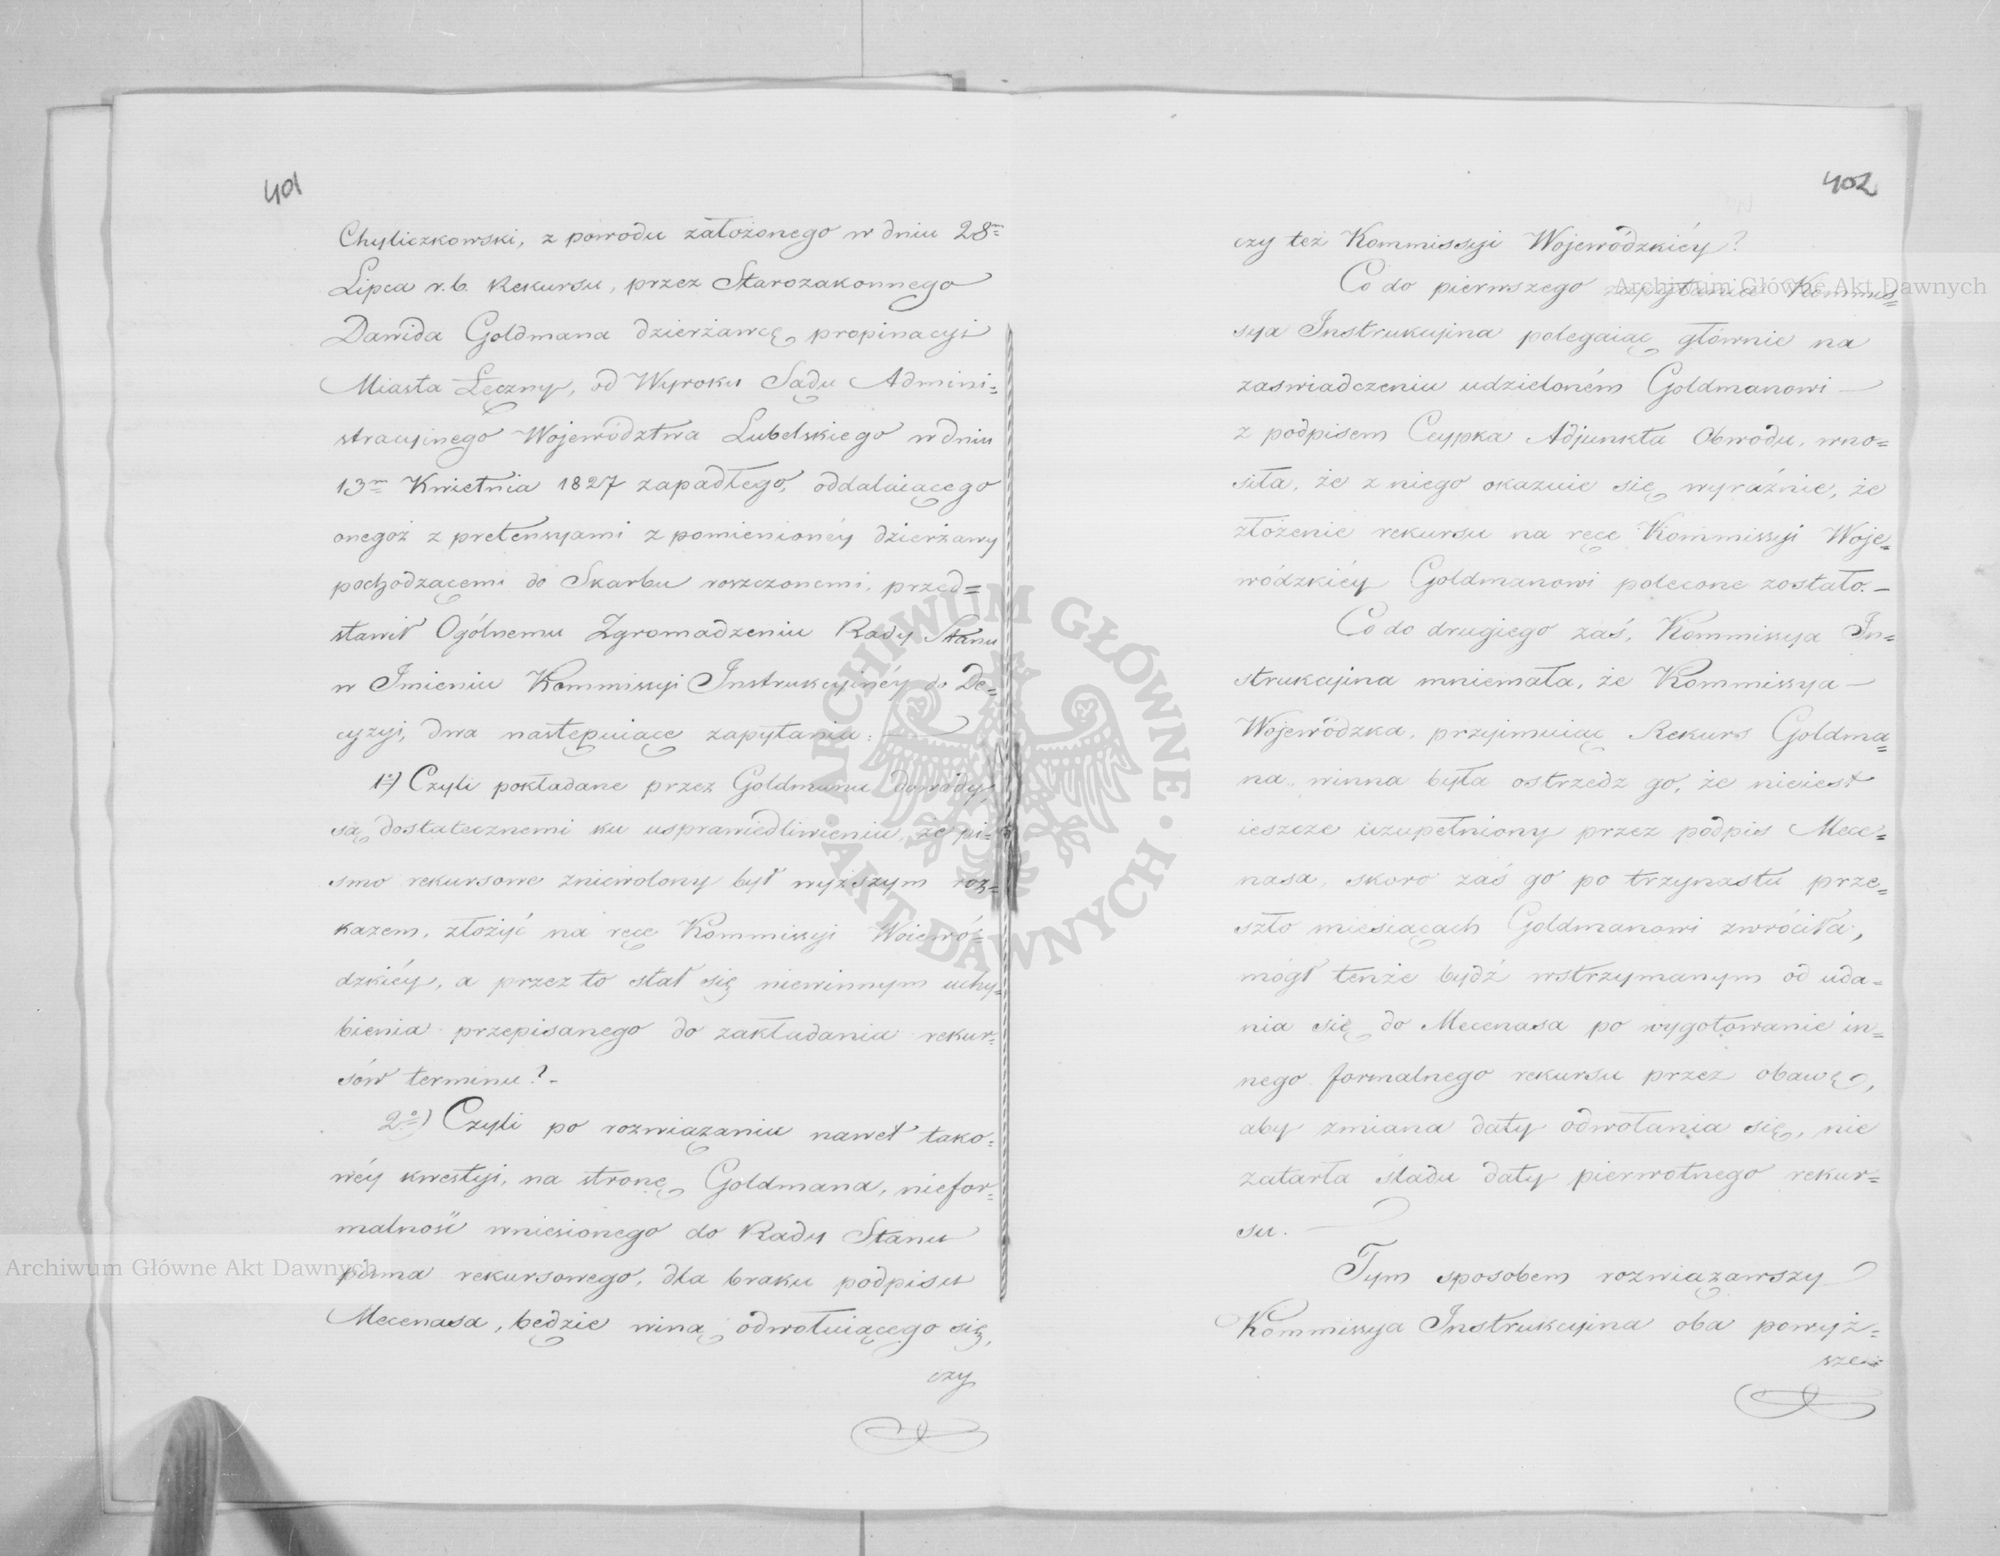 401
Chyliczkowski, z powodu założonego w dniu 28m
Lipca r.b. Rekursu, przez Starozakonnego
Dawida Goldmana dzierżawcę propinacyi
Miasta Łęczny, od Wyroku Sądu Admini=
stracyinego Województwa Lubelskiego w dniu
13m Kwietnia 1827 zapadłego, oddalaiącego
onegoż z pretensyami z pomienionéy dzierżawy
pochodzącemi do Skarbu roszczonemi, przed=
stawił Ogólnemu Zgromadzeniu Rady Stanu
w Imieniu Kommissyi Instrukcyinéy do De=
cyzyi, dwa następuiące zapytania:
1o) Czyli pokładane przez Goldmana dowody
są dostatecznemi ku usprawiedliwieniu, że pi=
smo rekursowe zniewolony był wyższym roz=
kazem, złożyć na ręce Kommissyi Woiewó=
dzkiéy, a przez to stał się niewinnym uchy=
bienia przepisanego do zakładania rekur=
sów terminu? -
2o) Czyli po rozwiązaniu nawet tako=
wéy kwestyi, na stronę Goldmana, niefor=
malność wniesionego do Rady Stanu
pisma rekursowego, dla braku podpisu
Mecenasa, będzie winą odwołuiącego się,
czy
402
czy też Kommissyi Wojewódzkiéy?
Co do pierwszego zapytania Kommis=
sya Instrukcyina polegaiąc głównie na
zaswiadczeniu udzieloném Goldmanowi —
z podpisem Ceypka Adjunkta Obwodu, wno=
siła, że z niego okazuie się wyraźnie, że
złożenie rekursu na ręce Kommissyi Woje=
wódzkiéy Goldmanowi polecone zostało. —
Co do drugiego zaś, Kommissya In=
strukcyina mniemała, że Kommissya —
Wojewódzka, przyimuiąc Rekurs Goldma=
na, winna była ostrzedz go, że nieiest
ieszcze uzupełniony przez podpis Mece=
nasa, skoro zaś go po trzynastu prze=
szło miesiącach Goldmanowi zwróciła,
mógł tenże bydź wstrzymanym od uda=
nia się do Mecenasa po wygotowanie in=
nego formalnego rekursu przez obawę,
aby zmiana daty odwołania się, nie
zatarła śladu daty pierwotnego rekur=
su. —
Tym sposobem rozwiązawszy
Kommissya Instrukcyina oba powyż=
sze
Archiwum Główne Akt Dawnych
Archiwum Główne Akt Dawnych
ARCHIWUM GŁÓWNE · AKT DAWNYCH ·